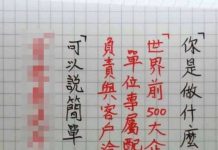 「你是做什麼
「世界前500大企
單位專屬配
負責與客戶洽
「可以說簡單